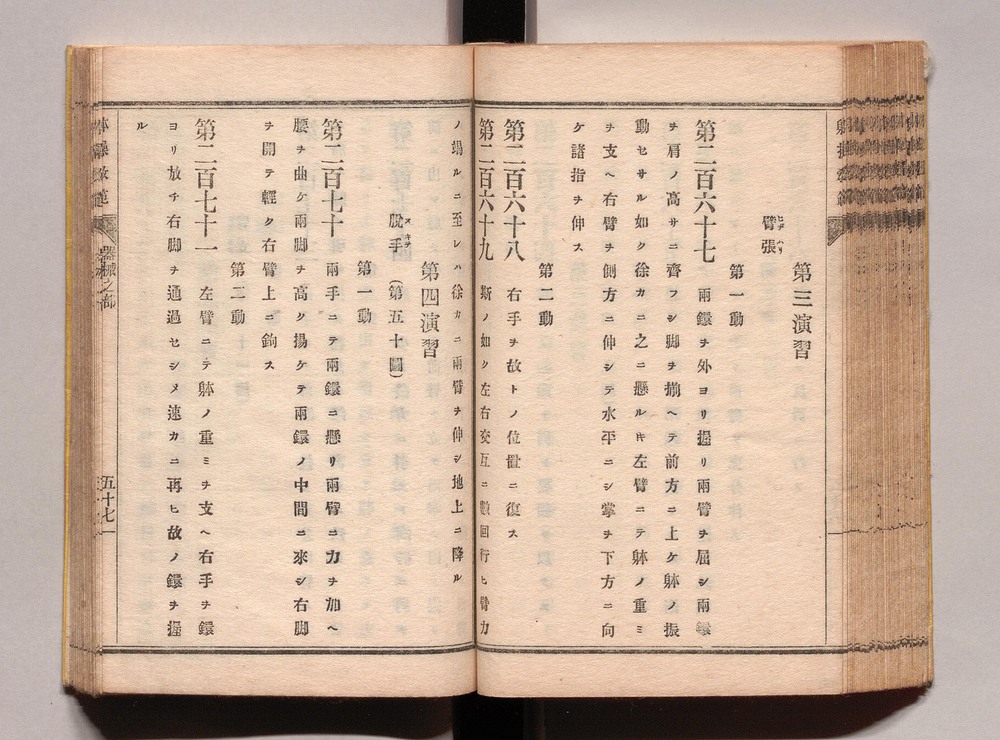 第三演習
臂張
ヒヂ ハリ
第一動
第二百六十七 兩鐶ヲ外ヨリ握リ兩臂ヲ屈シ兩鐶
ヲ肩ノ高サニ齊フシ脚ヲ揃ヘテ前方ニ上ケ躰ノ振
動セサル如ク徐カニ之ニ懸ルキ左臂ニテ躰ノ重ミ
ヲ支ヘ右臂ヲ側方ニ伸シテ水平ニシ掌ヲ下方ニ向
ケ諸指ヲ伸ス
第二動
第二百六十八 右手ヲ故トノ位置ニ復ス
第二百六十九 斯ノ如ク左右交互ニ數回行ヒ臂力
ノ竭ルニ至レハ徐カニ兩臂ヲ伸シ地上ニ降ル
第四演習
脫手 (第五十圖)
ヌキテ
第一動
第二百七十 兩手ニテ兩鐶ニ懸リ兩臂ニ力ヲ加ヘ
腰ヲ曲ケ兩脚ヲ高ク揚ケテ兩鐶ノ中間ニ來シ右脚
ヲ開テ輕ク右臂上ニ鉤ス
第二動
第二百七十一 左臂ニテ躰ノ重ミヲ支ヘ右手ヲ鐶
ヨリ放チ右脚ヲ通過セシメ速カニ再ヒ故ノ鐶ヲ握
ル
器械之部
五十七